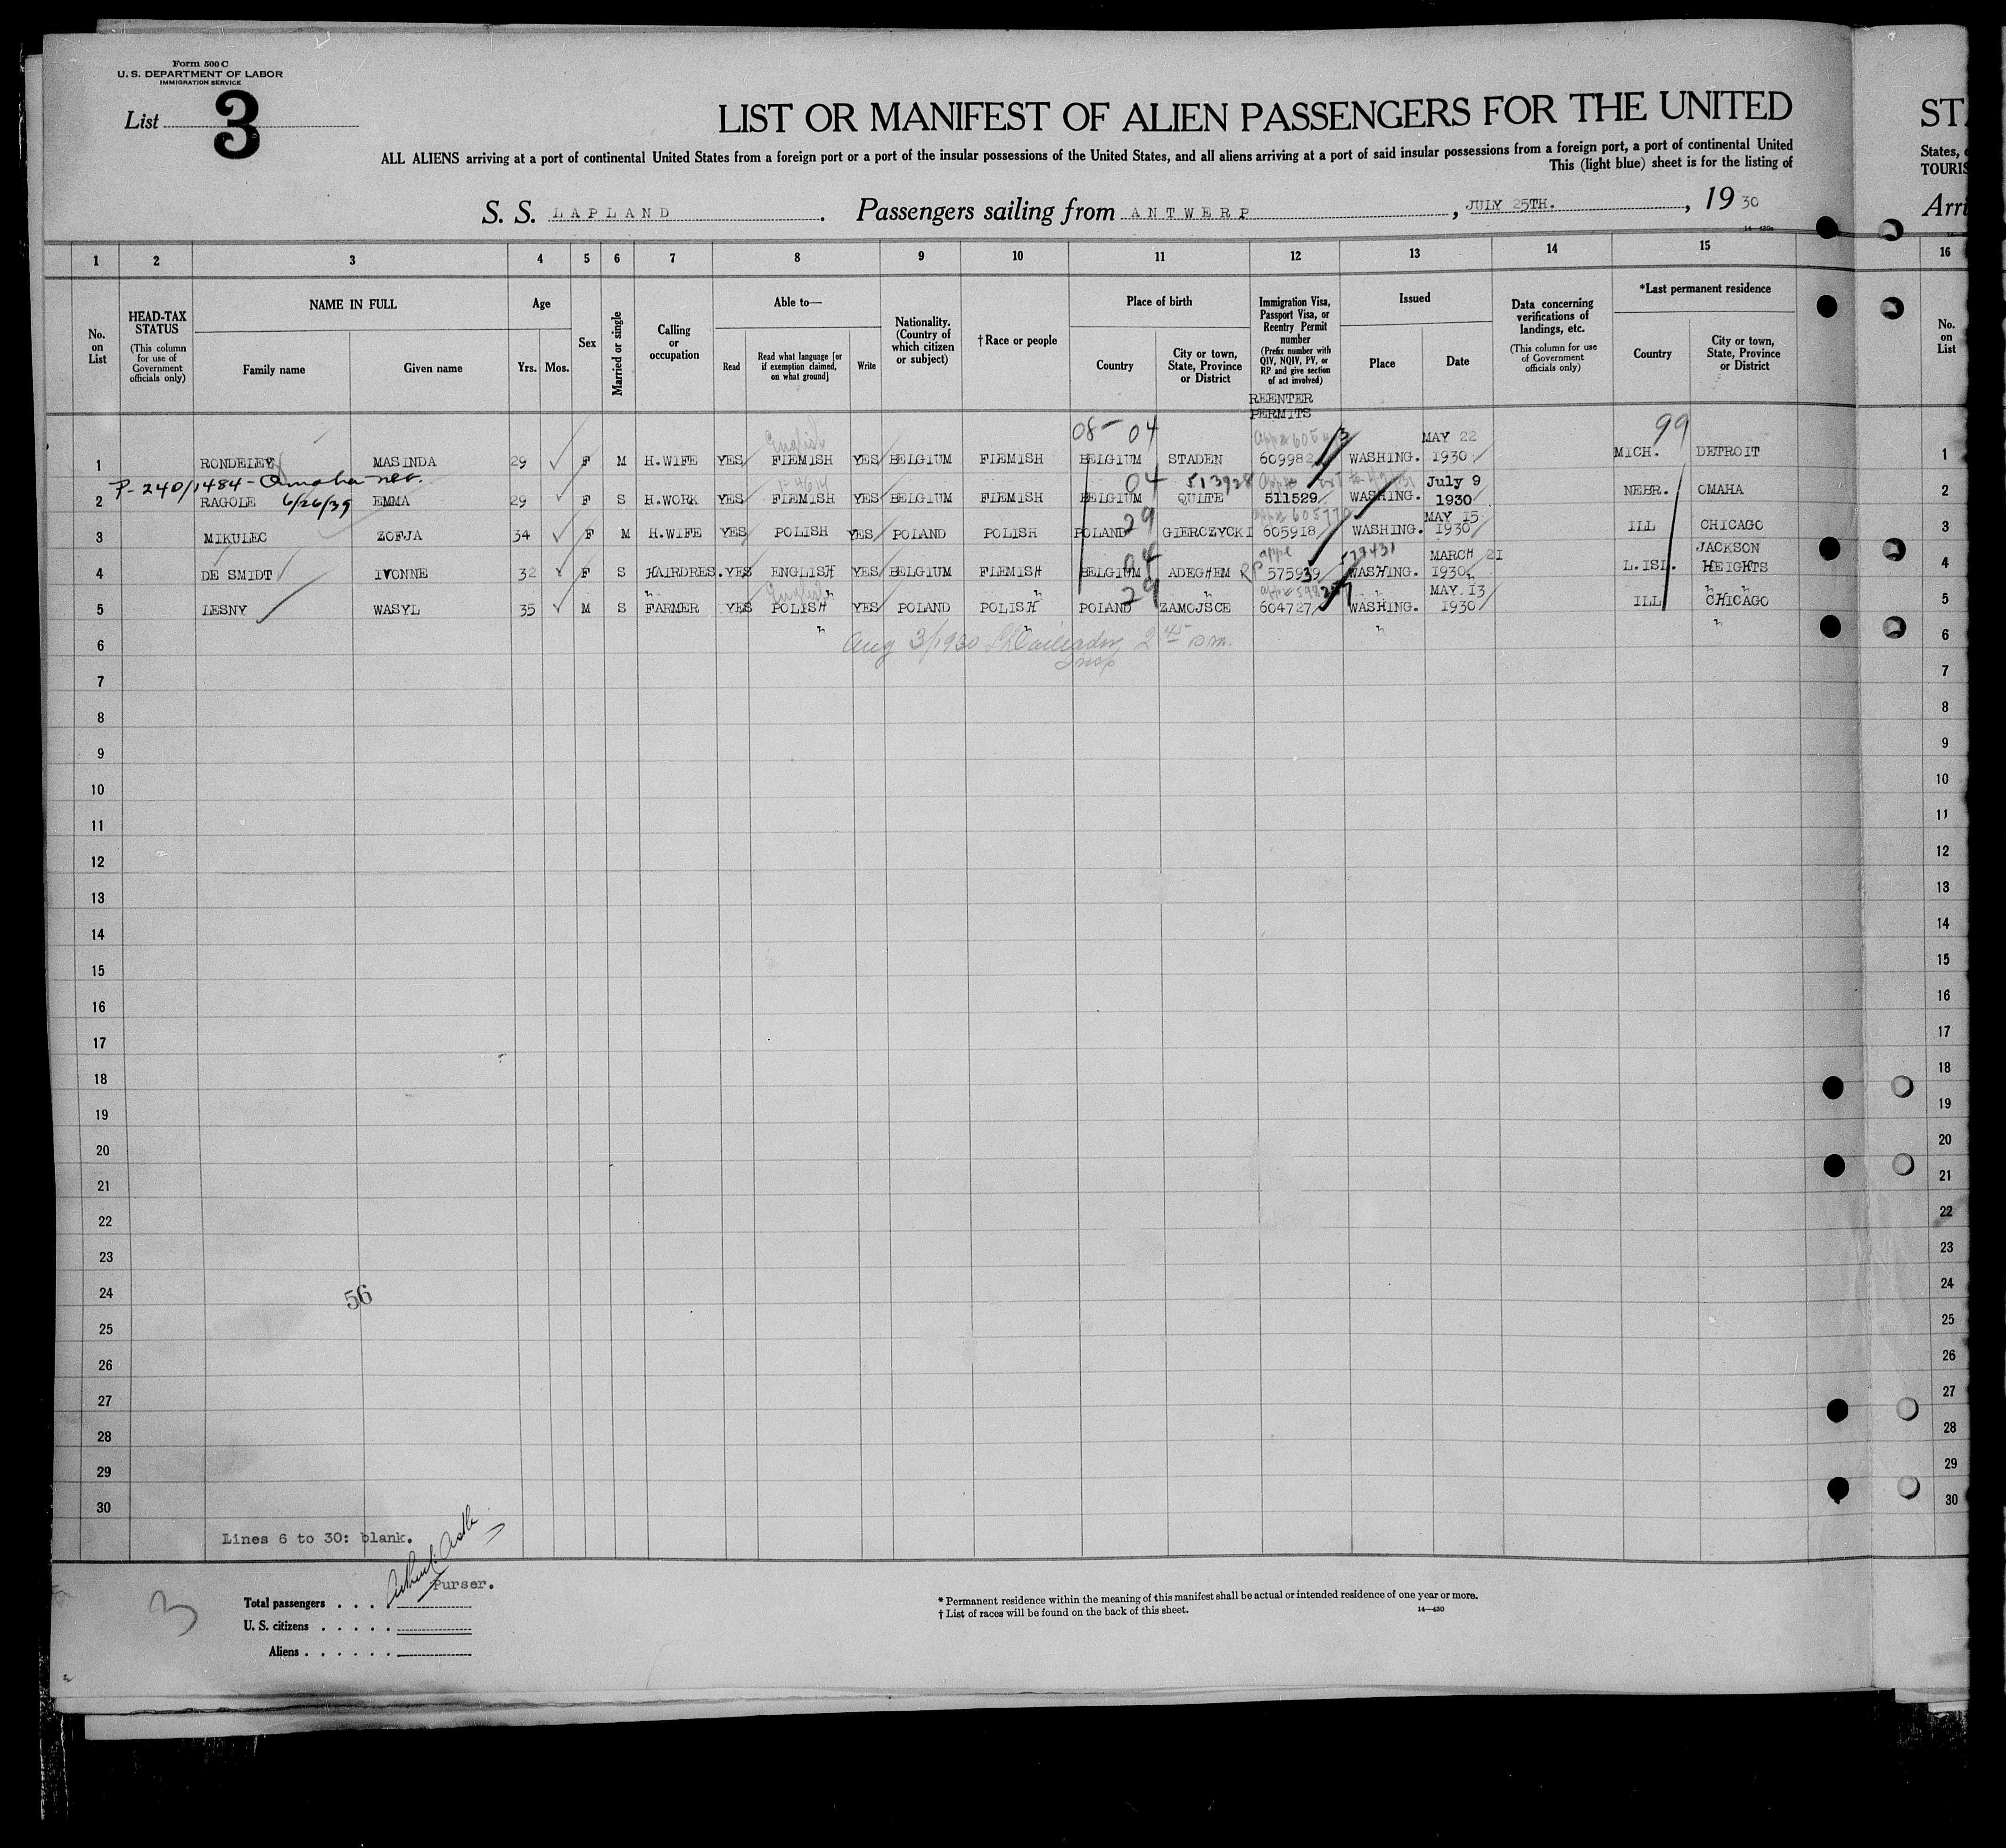 Form 500 C
U. S. DEPARTMENT OF LABOR
IMMIGRATION SERVICE
List 3
LIST OR MANIFEST OF ALIEN PASSENGERS FOR THE UNITED
ST
ALL ALIENS arriving at a port of continental United States from a foreign port or a port of the insular possessions of the United States, and all aliens arriving at a port of said insular possessions from a foreign port, a port of continental United
States,
This (light blue) sheet is for the listing of
TOURIS
S. S. LAPLAND. Passengers sailing from ANTWERP, JULY 25TH., 19 30
Arri
1 2 3 4 5 6 7 8 9 10 11 12 13 14 15 16
No. on List
HEAD-TAX STATUS
(This column for use of Government officials only)
NAME IN FULL
Family name Given name
Age
Yrs. Mos.
Sex
Married or single
Calling or occupation
Able to—
Read
Read what language [or if exemption claimed, on what ground]
Write
Nationality. (Country of which citizen or subject)
†Race or people
Place of birth
Country
City or town, State, Province or District
Immigration Visa, Passport Visa, or Reentry Permit number
(Prefix number with QIV, NQIV, PV, or RP and give section of act involved)
Issued
Place Date
Data concerning verifications of landings, etc.
(This column for use of Government officials only)
*Last permanent residence
Country
City or town, State, Province or District
No. on List
REENTER
PERMITS
08- 04 99
English MAY 22
1 RONDELEY MASINDA 29 F M H.WIFE YES FLEMISH YES BELGIUM FLEMISH BELGIUM STADEN 609982 WASHING. 1930 MICH. DETROIT 1
P-240/1484-Omaha neb. 04 513928 July 9
2 RAGOLE 6/26/39 EMMA 29 F S H.WORK YES FLEMISH YES BELGIUM FLEMISH BELGIUM QUITE 511529 WASHING. 1930 NEBR. OMAHA 2
29 605770 MAY 15
3 MIKULEC ZOFJA 34 F M H.WIFE YES POLISH YES POLAND POLISH POLAND GIERCZYCKI 605918 WASHING. 1930 ILL CHICAGO 3
04 appe MARCH 21 JACKSON
4 DE SMIDT IVONNE 32 F S HAIRDRES. YES ENGLISH YES BELGIUM FLEMISH BELGIUM ADEGHEM RP 575939 WASHING. 1930 L.ISL. HEIGHTS 4
English 29 MAY 13
5 LESNY WASYL 35 M S FARMER YES POLISH YES POLAND POLISH POLAND ZAMOJSCE 604727 WASHING. 1930 ILL CHICAGO 5
6 Aug 3/1930 2 45 pm. 6
Insp
7 7
8 8
9 9
10 10
11 11
12 12
13 13
14 14
15 15
16 16
17 17
18 18
19 19
20 20
21 21
22 22
23 23
24 56 24
25 25
26 26
27 27
28 28
29 29
30 30
Lines 6 to 30: blank.
Purser.
3
Total passengers
U. S. citizens
Aliens
* Permanent residence within the meaning of this manifest shall be actual or intended residence of one year or more.
† List of races will be found on the back of this sheet.
14—430